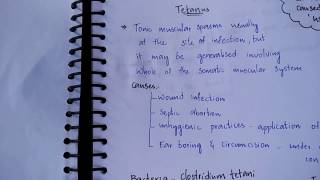 Tetanus
→ Tonic muscular spasms usually
at the site of infection, but
it may be generalised involving
whole of the somatic muscular system
causes:-
wound infection
Septic abortion
Unhygienic practices - application of
Ear boring & Circumcision - under
con
Bacteria - Clostridium tetani
caused